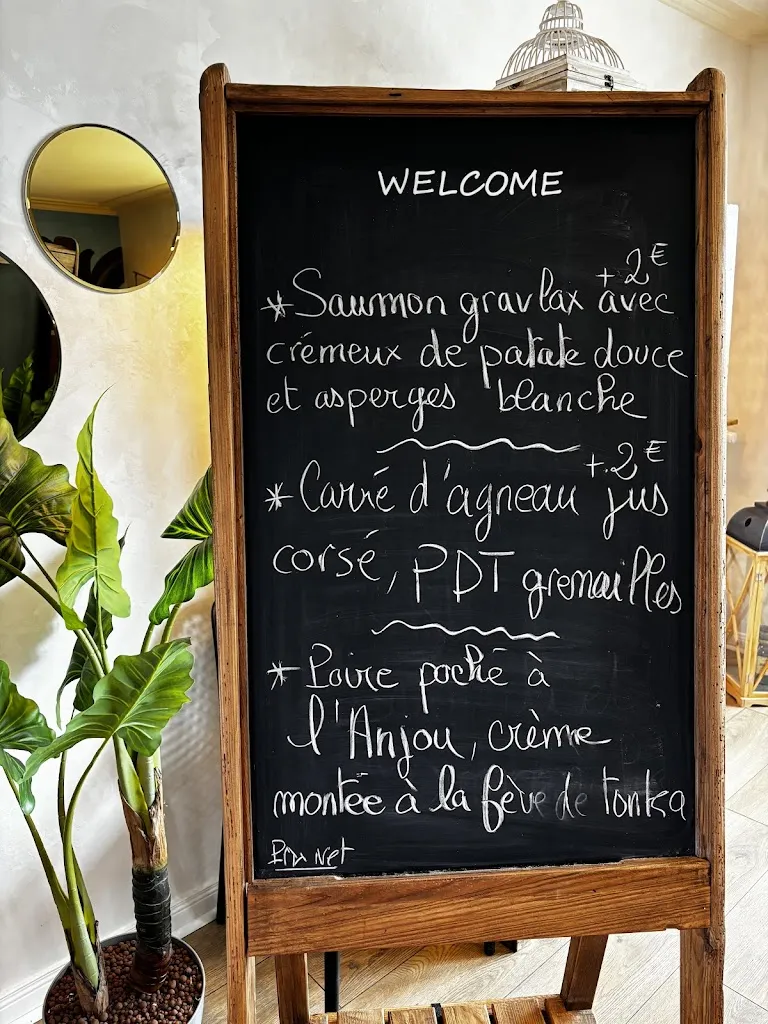 WELCOME
+2€
*Saumon gravlax avec
crémeux de patate douce
et asperges blanche
+2€
*Carré d'agneau jus
corsé, PDT grenailles
*Poire poché à
l'Anjou, crème
montée à la fève de tonka
Prix net